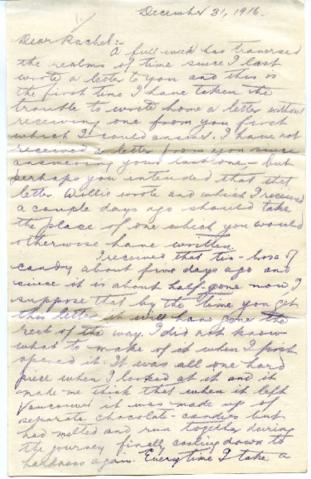 December 31, 1916.
Dear Rachel:-
A full week has traversed
the realms of time since I last
wrote a letter to you and this is
the first time I have taken the
trouble to wrote home a letter without
receiving one from you first
which I could answer. I have not
received a letter from you since
answering your last one - but
perhaps you intended that that
letter Willie wrote and which I received
a couple days ago should take
the place of one which you would
otherwise have written.
I received that tin-box of
candy about five days ago and
since it is about half-gone now I
suppose that by the time you get
this letter it will have gone the
rest of the way. I did not know
what to make of it when I first
opened it. It was all one hard
piece when I looked at it and it
made me think that when it left
Vancouver it was made up of
separate chocolate-candies but
had melted and run together during
the journey finally cooling down to
hardness again. Every time I take a